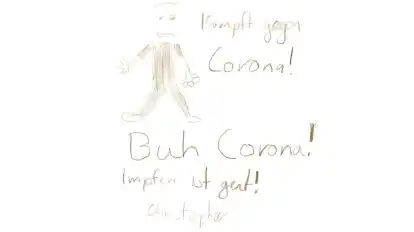 Kampft gegen
Corona!
Buh Corona!
Impfen ist gut!
Christopher